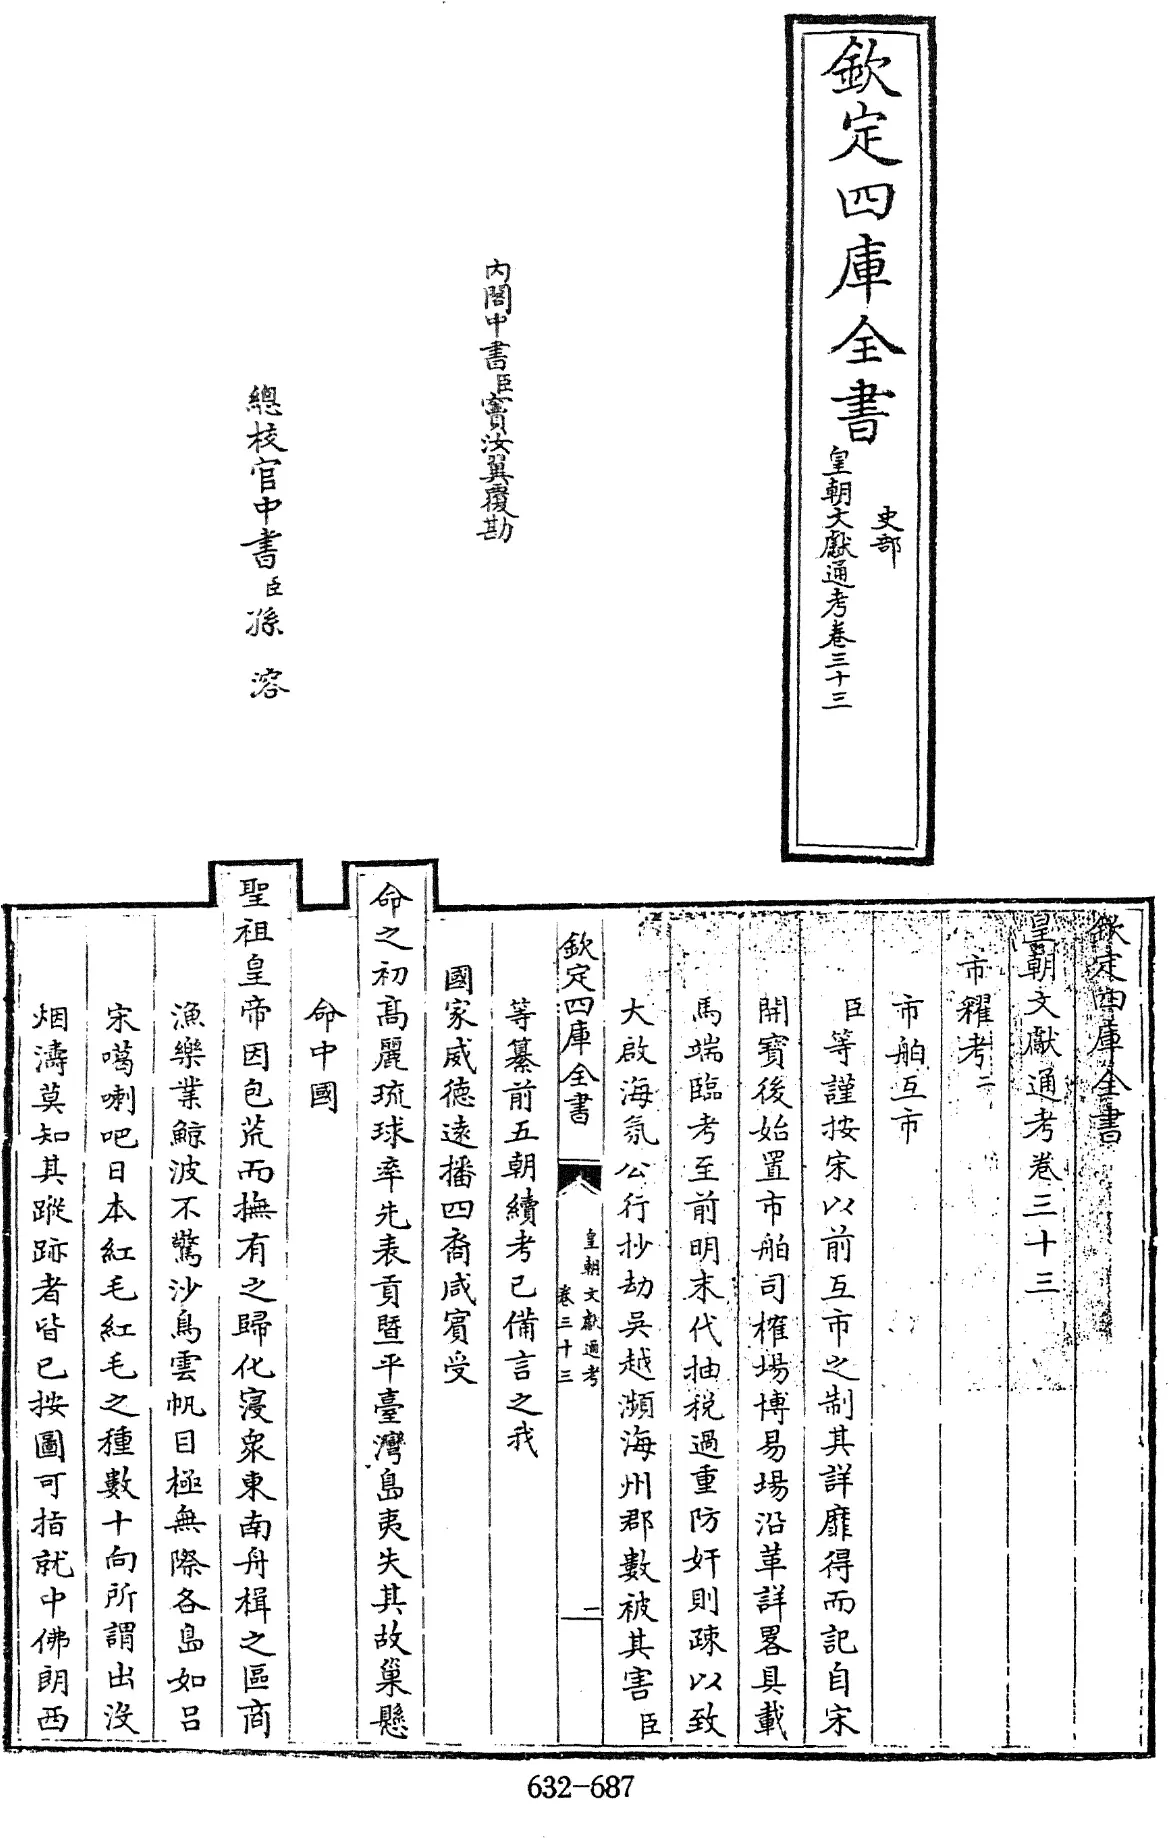 欽定四庫全書
史部
皇朝文獻通考卷三十三
內閣中書臣竇汝翼覆勘
總校官中書臣孫溶
欽定四庫全書
皇朝文獻通考卷三十三
市糴考二
市舶互市
臣等謹按宋以前互市之制其詳靡得而記自宋
開寶後始置市舶司榷場博易場沿革詳畧具載
馬端臨考至前明末代抽稅過重防奸則疎以致
大啟海氛公行抄劫吳越瀕海州郡數被其害臣
欽定四庫全書
皇朝文獻通考
卷三十三
一
等纂前五朝續考已備言之我
國家威德遠播四裔咸賓受
命之初高麗琉球率先表貢暨平臺灣島夷失其故巢懸
命中國
聖祖皇帝因包荒而撫有之歸化寖衆東南舟楫之區商
漁樂業鯨波不驚沙鳥雲帆目極無際各島如呂
宋噶喇吧日本紅毛紅毛之種數十向所謂出沒
烟濤莫知其蹤跡者皆已按圖可指就中佛朗西
632-687